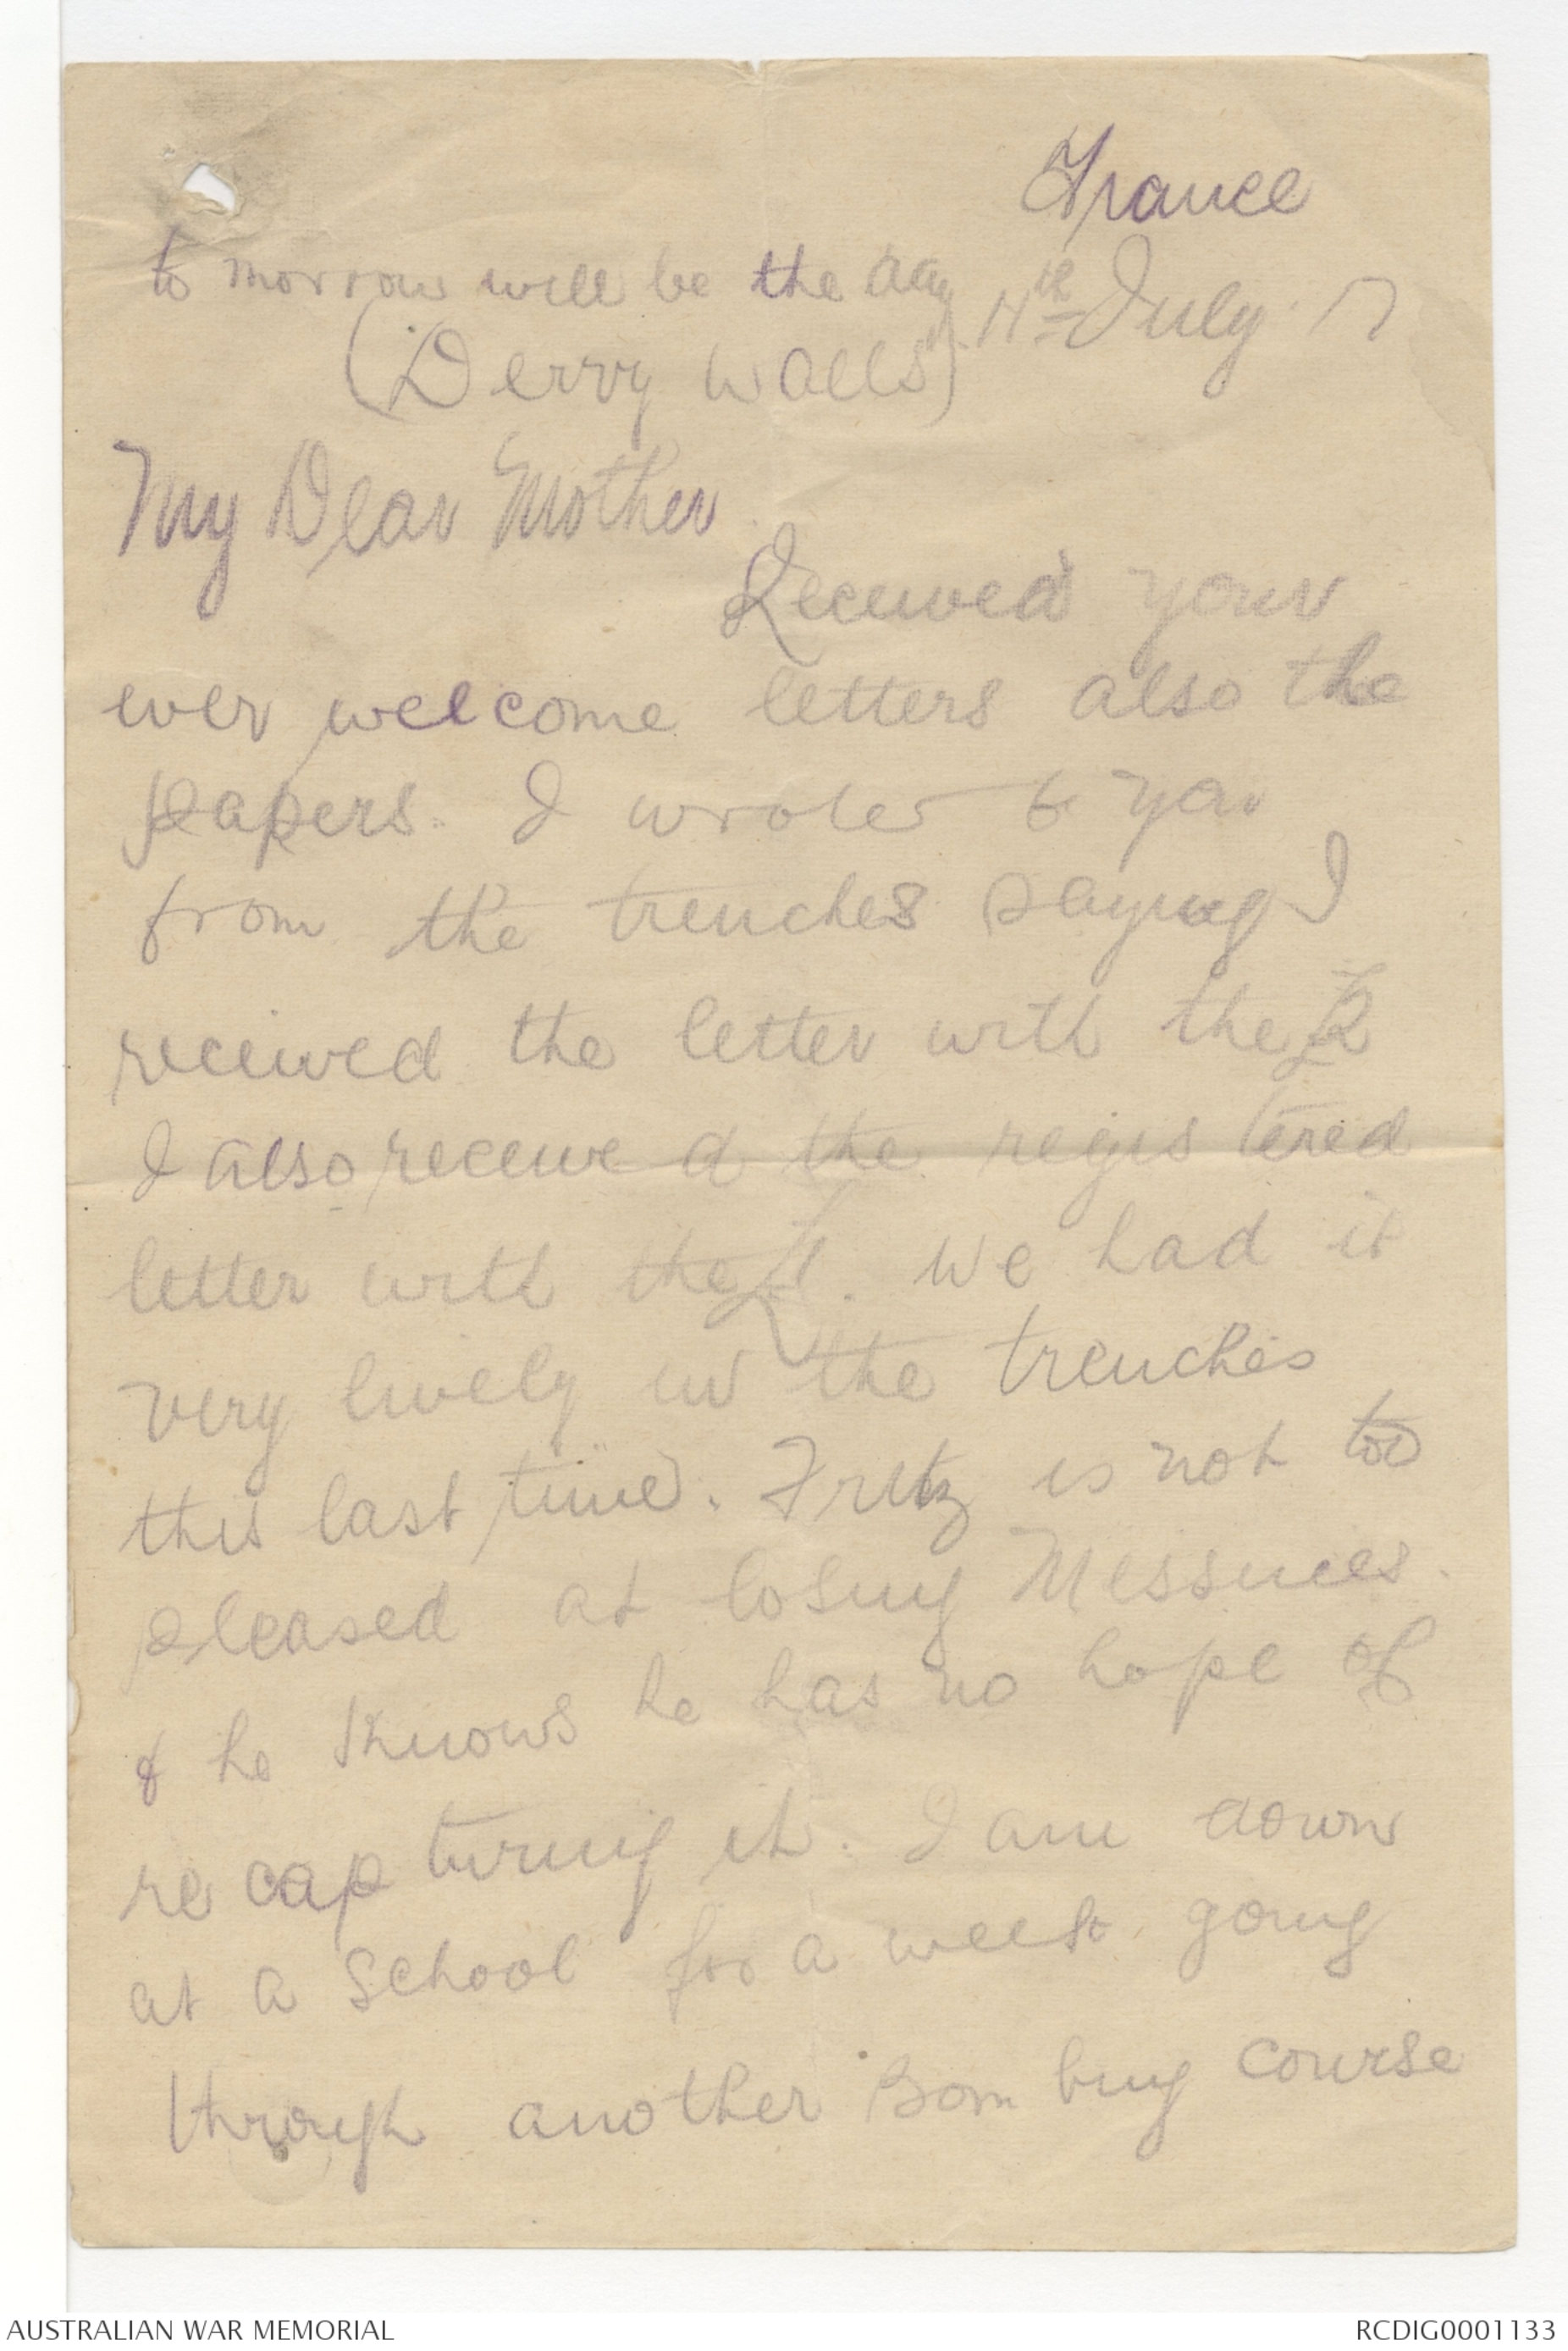 France
to morrow will be the day 11th July 17
(Derry Walls)
My Dear Mother
Received your
ever welcome letters also the
papers. I wrote to you
from the trenches saying I
received the letter with the £2
I also received the registered
letter with the £1. We had it
very lively in the trenches
this last time. Fritz is not too
pleased at losing Messines.
& he knows he has no hope of
re capturing it. I am down
at a School for a week. going
through another Bombing course
AUSTRALIAN WAR MEMORIAL
RCDIG0001133